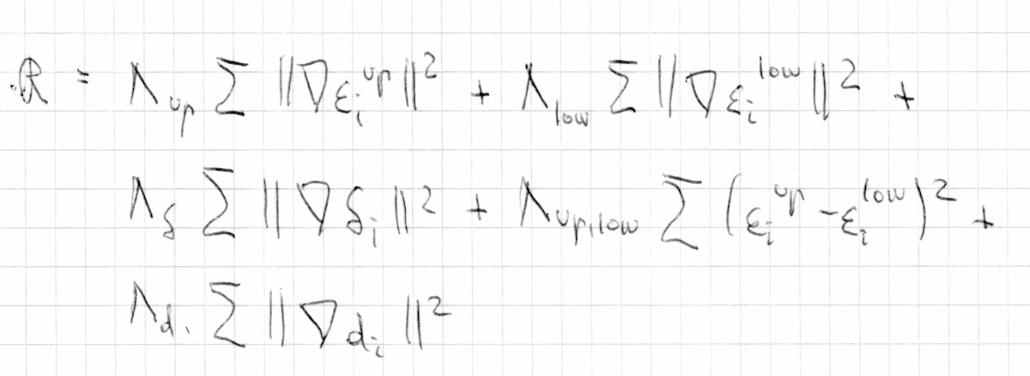 R = λ_up ∑ ||∇ε_i^up||² + λ_low ∑ ||∇ε_i^low||² +
λ_δ ∑ ||∇δ_i||² + λ_up,low ∑ (ε_i^up - ε_i^low)² +
λ_d. ∑ ||∇d_i||²